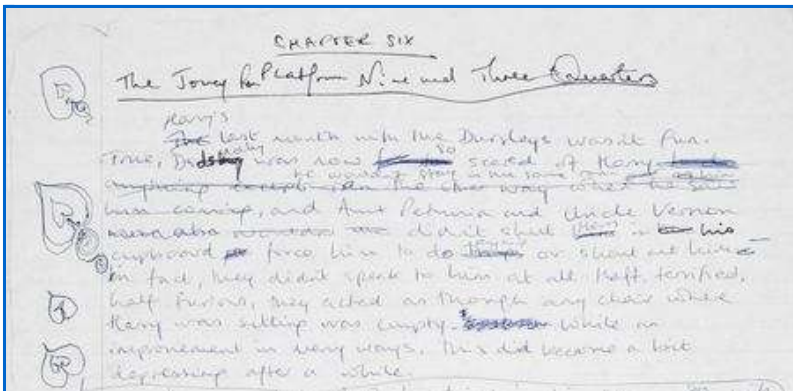 CHAPTER SIX
The Journey from Platform Nine and Three Quarters
Harry's
last month with the Dursleys wasn't fun.
True, Dudley was now so scared of Harry
he wouldn't stay in the same room
him coming, and Aunt Petunia and Uncle Vernon
didn't shut Harry in his
cupboard force him to do or shout at him
In fact, they didn't speak to him at all. Half terrified,
half furious, they acted as though any chair where
Harry was sitting was empty. While an
improvement in many ways, this did become a bit
depressing after a while.